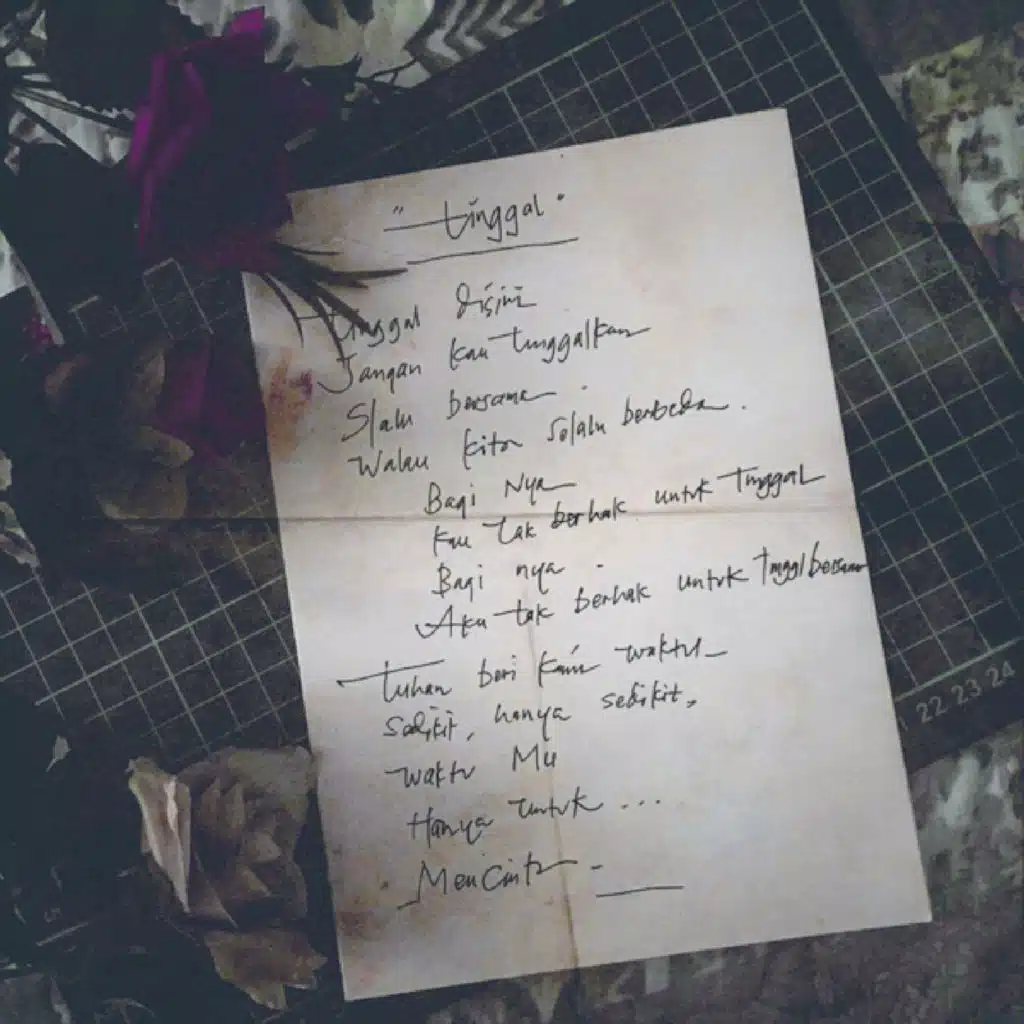 "tinggal"
tinggal disini
Jangan kau tinggalkan
Slalu bersama
Walau kita selalu berbeda.
Bagi Nya
kau tak berhak untuk Tinggal
Bagi nya
Aku tak berhak untuk Tinggl bersama
Tuhan beri kami waktu
Sedikit, hanya sedikit,
waktu Mu
Hanya untuk ...
Mencinta -
22 23 24